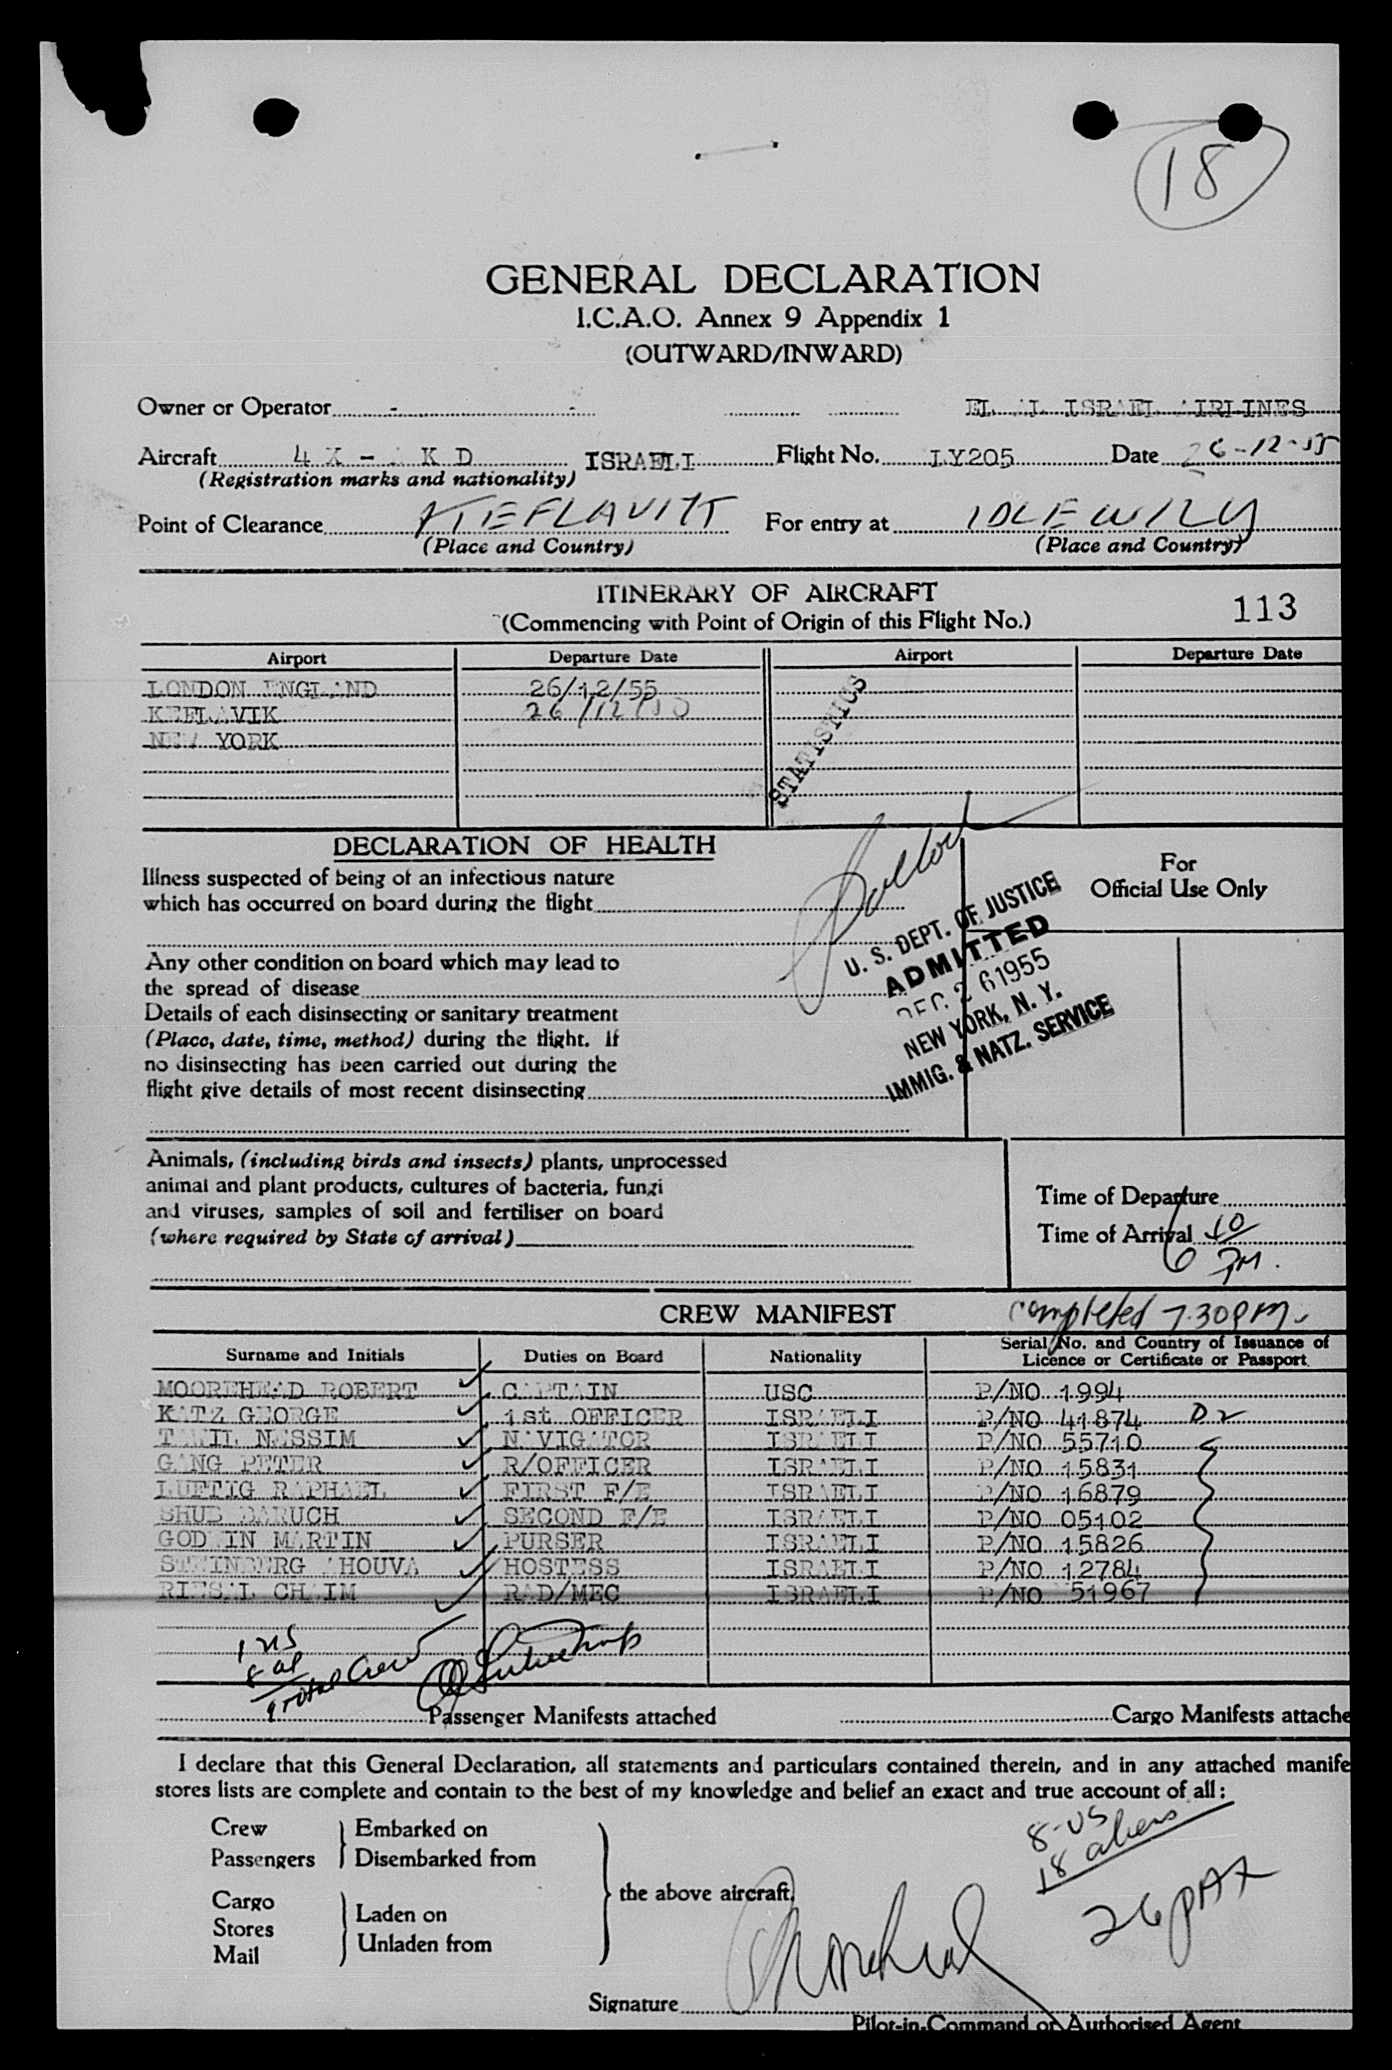 18
GENERAL DECLARATION
I.C.A.O. Annex 9 Appendix 1
(OUTWARD/INWARD)
Owner or Operator EL AL ISRAEL AIRLINES
Aircraft 4X - AKD ISRAELI Flight No. LY205 Date 26-12-55
(Registration marks and nationality)
Point of Clearance KEFLAVIK For entry at IDLEWILD
(Place and Country) (Place and Country)
ITINERARY OF AIRCRAFT
(Commencing with Point of Origin of this Flight No.) 113
Airport Departure Date Airport Departure Date
LONDON ENGLAND 26/12/55
KEFLAVIK 26/12/55
NEW YORK
STATISTICS
DECLARATION OF HEALTH
For
Official Use Only
Illness suspected of being of an infectious nature
which has occurred on board during the flight
U. S. DEPT. OF JUSTICE
ADMITTED
DEC 26 1955
NEW YORK, N. Y.
IMMIG. & NATZ. SERVICE
Any other condition on board which may lead to
the spread of disease
Details of each disinsecting or sanitary treatment
(Place, date, time, method) during the flight. If
no disinsecting has been carried out during the
flight give details of most recent disinsecting
Animals, (including birds and insects) plants, unprocessed
animal and plant products, cultures of bacteria, fungi
and viruses, samples of soil and fertiliser on board
(where required by State of arrival)
Time of Departure
Time of Arrival 6 10 PM.
CREW MANIFEST completed 7.30 PM.
Surname and Initials Duties on Board Nationality Serial No. and Country of Issuance of
Licence or Certificate or Passport
MOOREHEAD ROBERT CAPTAIN USC P/NO 1994
KATZ GEORGE 1st OFFICER ISRAELI P/NO 41874 D2
TAWIL NESSIM NAVIGATOR ISRAELI P/NO 55710
GANG PETER R/OFFICER ISRAELI P/NO 15831
LUFTIG RAPHAEL FIRST F/E ISRAELI P/NO 16879
SHUB BARUCH SECOND F/E ISRAELI P/NO 05102
GODWIN MARTIN PURSER ISRAELI P/NO 15826
STEINBERG AHOUVA HOSTESS ISRAELI P/NO 12784
RIESAL CHAIM RAD/MEC ISRAELI P/NO 51967
1 US
8 al
9 Total Crew
Passenger Manifests attached Cargo Manifests attache
I declare that this General Declaration, all statements and particulars contained therein, and in any attached manife
stores lists are complete and contain to the best of my knowledge and belief an exact and true account of all:
Crew Embarked on
Passengers Disembarked from
Cargo
Stores Laden on
Mail Unladen from
the above aircraft.
8-US
18 aliens
26 PAX
Signature
Pilot-in-Command or Authorised Agent